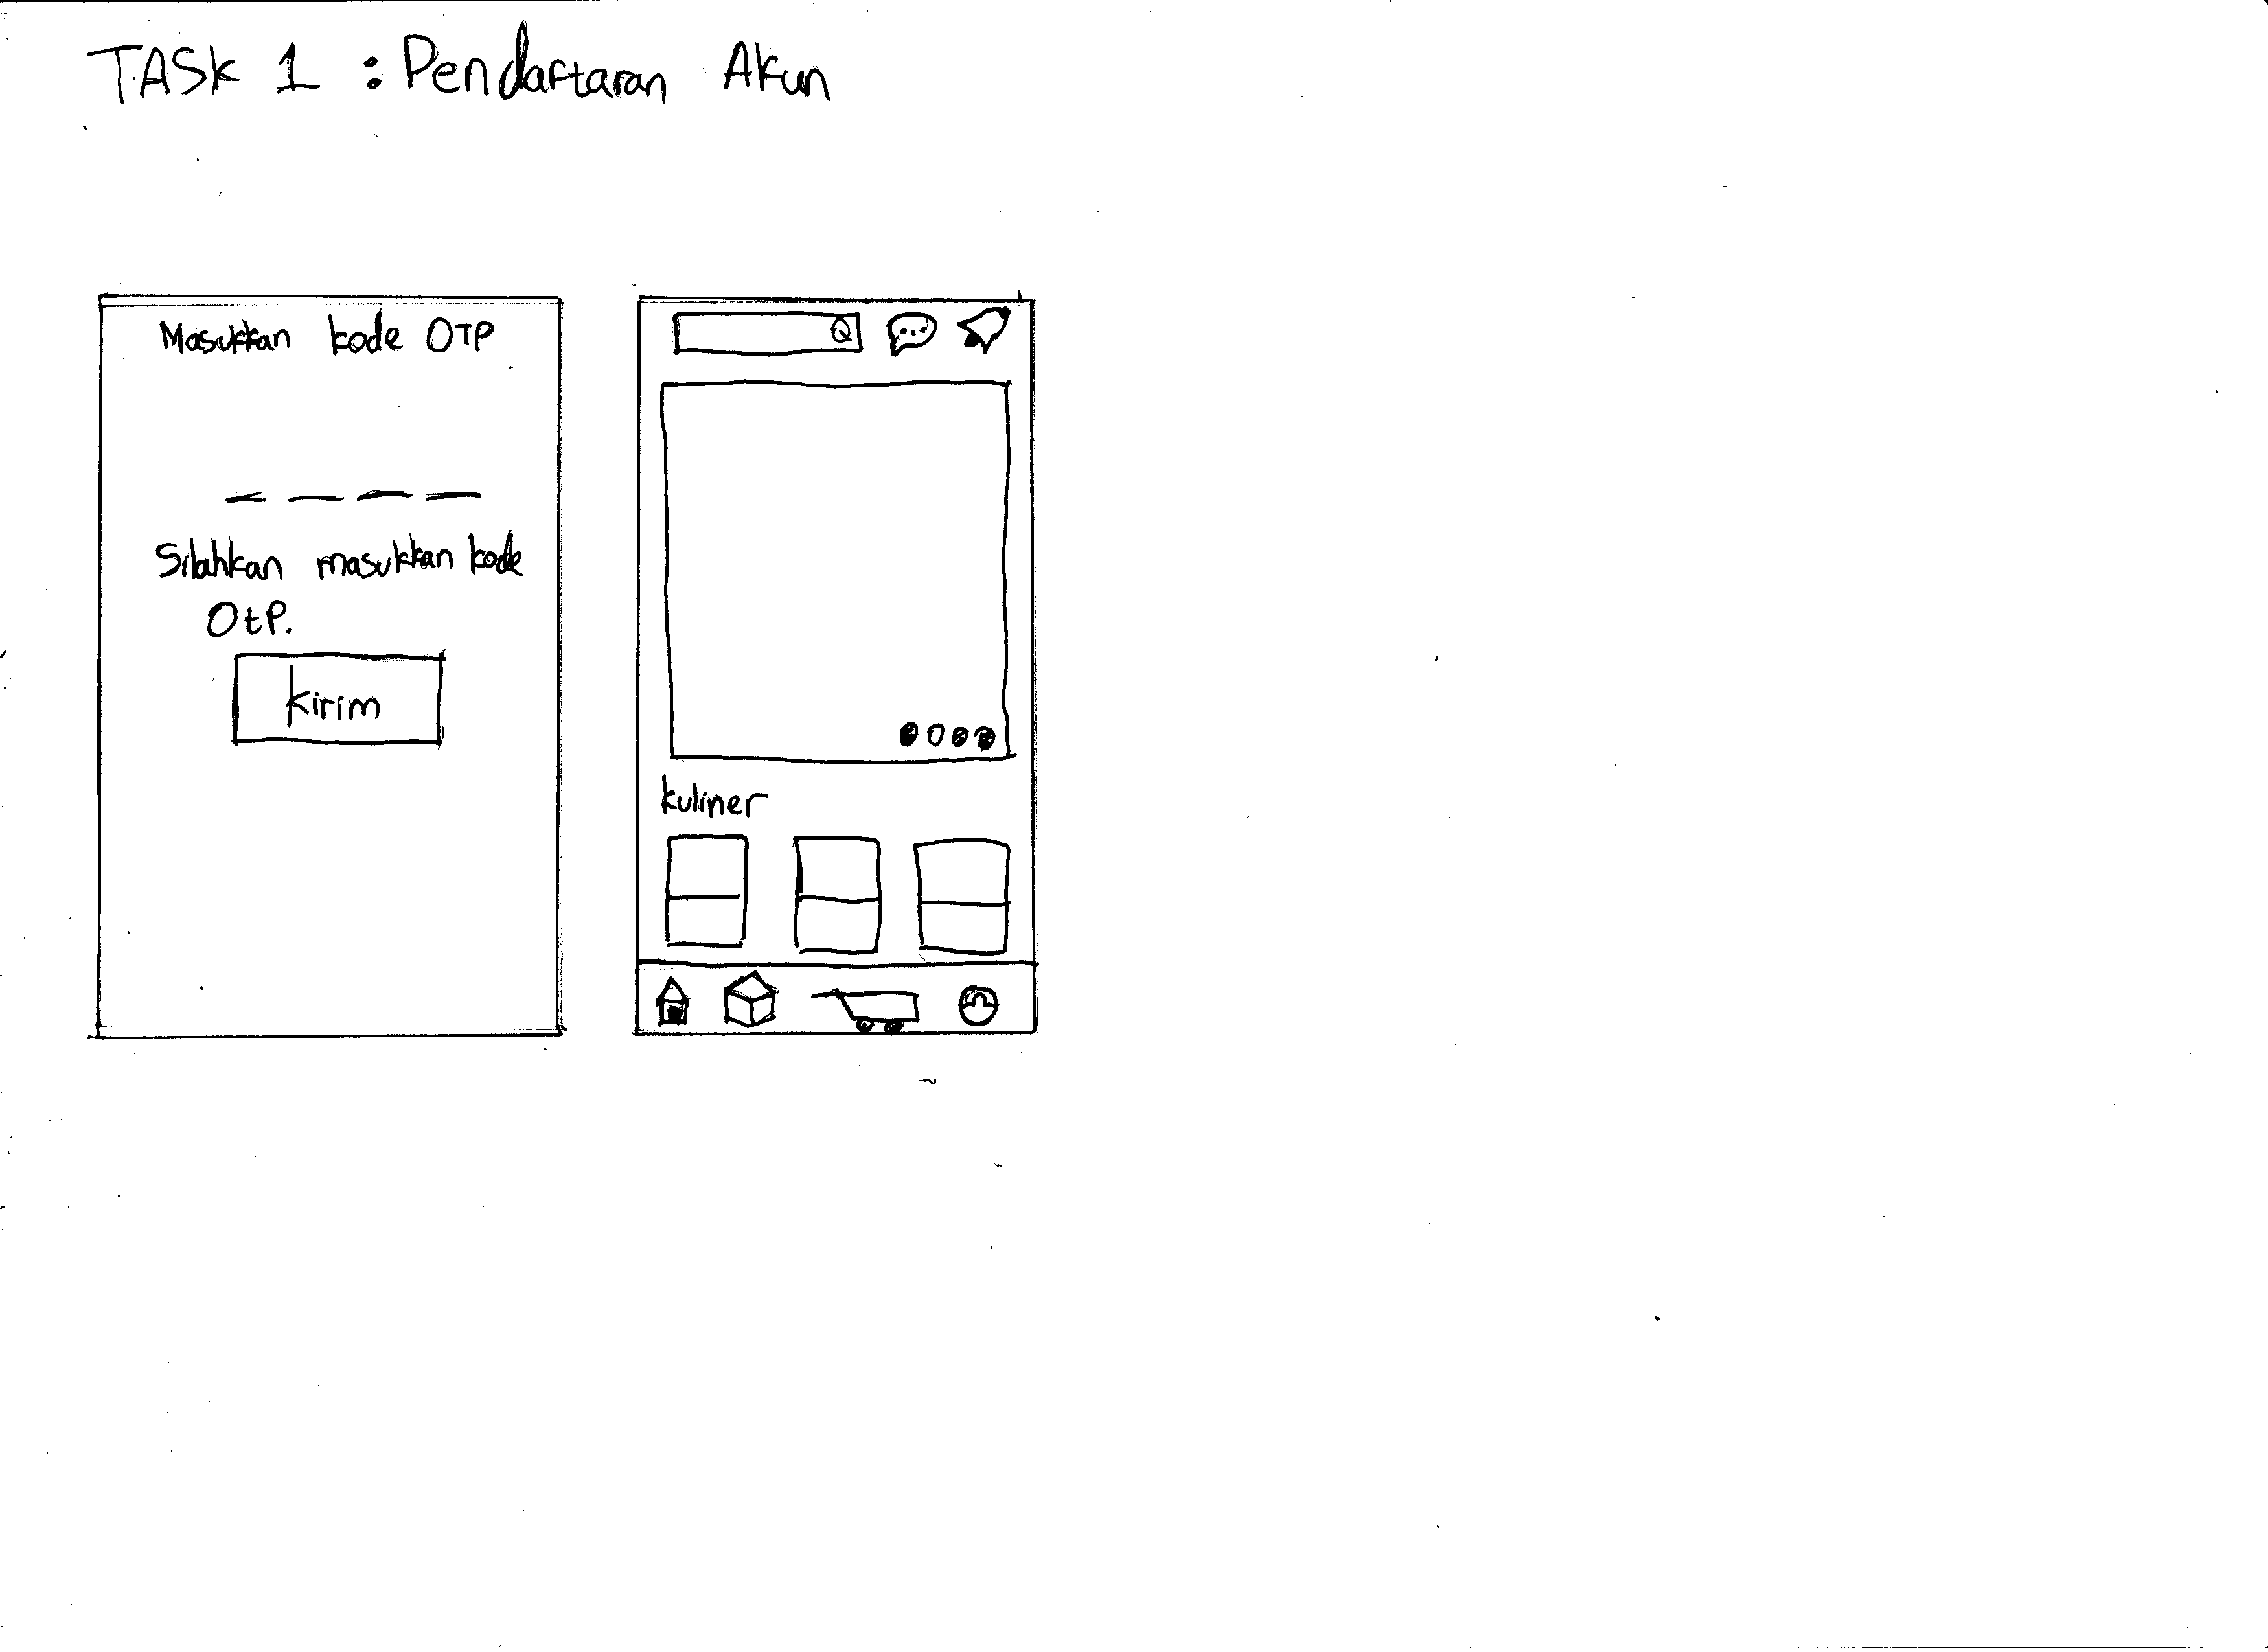 TASK 1 : Pendaftaran Akun
Masukkan kode OTP
Silahkan masukkan kode
OtP.
kirim
kuliner